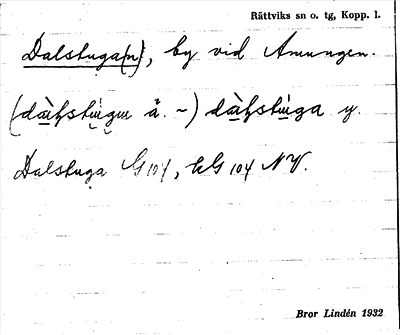 Rättviks sn o. tg, Kopp. l.
Dalstuga(n), by vid Amungen.
(dàḷstúgu å. ~) dàḷstúga y.
Dalstuga G 104, EG 104 NV.
Bror Lindén 1932